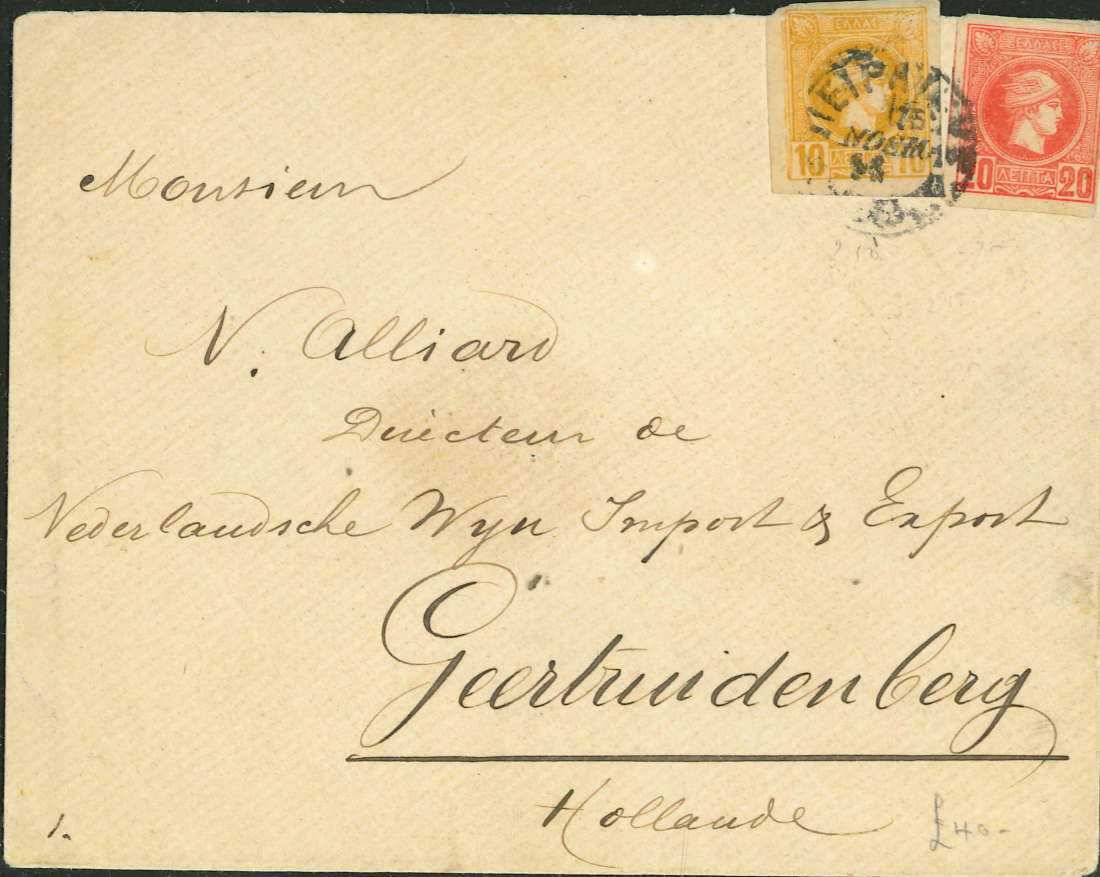 ΕΛΛΑΣ
10 ΛΕΠΤΑ 10
ΕΛΛΑΣ
20 ΛΕΠΤΑ 20
ΝΟΕΜΒ
Monsieur
N. Alliard
Directeur de
Nederlandsche Wyn Import & Export
Geertruidenberg
Hollande
1.
£40-